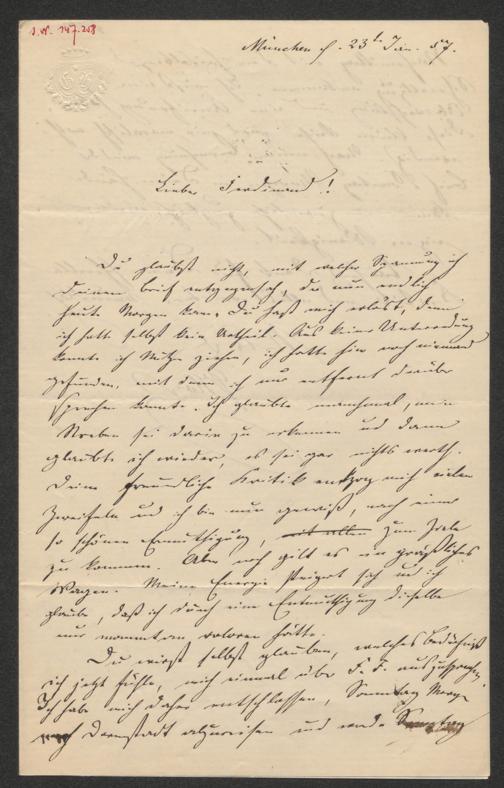 J.N. 147.208
München d. 23t Jan. 57.
Lieber Ferdinand!
Du glaubst nicht, mit welcher Spannung ich
Deinem Brief entgegensah, der nun endlich
heute Morgen kam. Du hast mich erlöst, denn
ich hatte selbst kein Urtheil. Aus keiner Unterredung
konnte ich Nutzen ziehen, ich hatte hier noch niemand
gefunden, mit dem ich nur entfernt darüber
sprechen konnte. Ich glaubte manchmal, mein
Streben sei darin zu erkennen und dann
glaubte ich wieder, es sei gar nichts werth.
Deine freundliche Kritik entzog mich vielen
Zweifeln und ich bin nun gewiß, nach einer
so schönen Ermuthigung, zum Ziele
zu kommen. Aber noch gilt es ein gräßliches
Wagen. Meine Energie steigert sich und ich
glaube, daß ich durch eine Entmuthigung dieselbe
nur momentan verloren hätte.
Du wirst selbst glauben, welches Bedürfniß
ich jetzt fühle, mich einmal über F. F. auszusprechen.
Ich habe mich daher entschlossen, Sonntag Morgen
nach Darmstadt abzureisen und werde